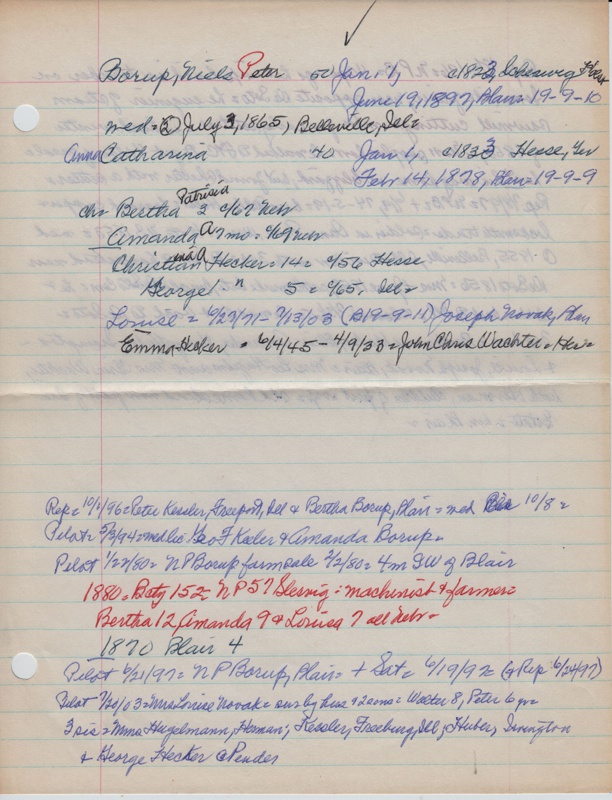 Borup, Niels Peter 50 Jan 1, c1823, Schleswig Holst
June 19, 1897, Blair= 19-9-10
med= ② July 3, 1865, Belleville, Ill=
Anna Catharina 40 Jan 1, c1833 Hesse, Ger
Febr 14, 1878, Blair= 19-9-9
chr Bertha Patrisia 2 c/67 Nebr
Amanda A 7 mo= c/69 Nebr
Christian Hecker= 14= c/56 Hesse
George " 5= c/65, Ill=
Louise = 6/27/71- 7/13/03 (B19-9-11) Joseph Novak, Blair
Emma Hecker = 6/4/45 - 4/9/33= John Chris Wachter=
Rep= 10/1/96= Peter Kessler, Freeport, Ill & Bertha Borup, Blair= med 10/8=
Pilot= 5/3/94= med lic Geo F Keeler & Amanda Borup=
Pilot 1/22/80= NP Borup farm sale 2/2/80= 4m SW of Blair
1880= Baty 152= NP 57 Slesvig= machinist & farmer=
Bertha 12 Amanda 9 & Louisa 7 all Nebr=
1870 Blair 4
Pilot 6/21/97= NP Borup, Blair= + Sat= 6/19/97= (& Rep= 6/24/97)
Pilot 7/20/03= Mrs Louise Novak= sur by hus & 2 sons= Walter 8, Peter 6 yr=
3 sis= Mmes Hugelmann, Herman; Kessler, Freeburg, Ill; Huber, Irvington
& George Hecker @ Pender